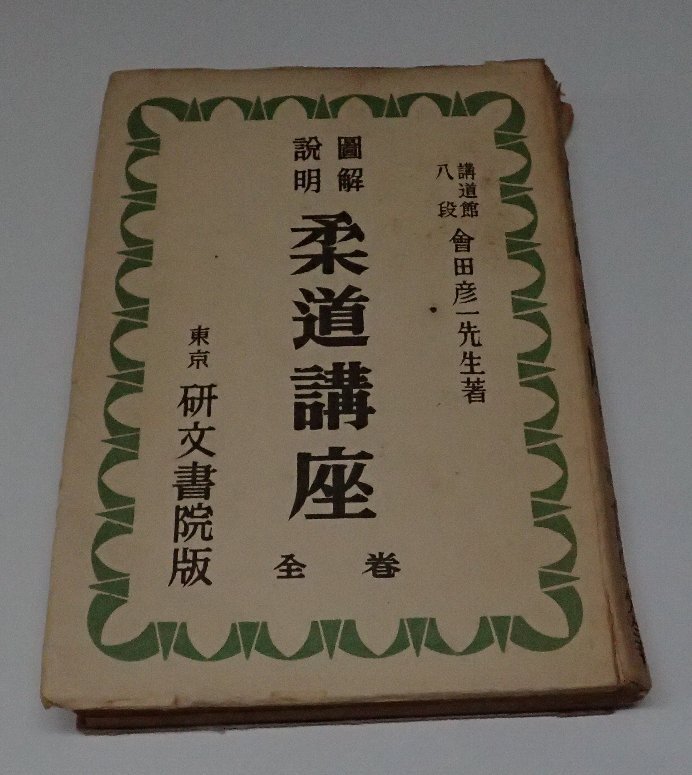 講道館
八段
會田彦一先生著
圖解
說明
柔道講座
全巻
東京
研文書院版